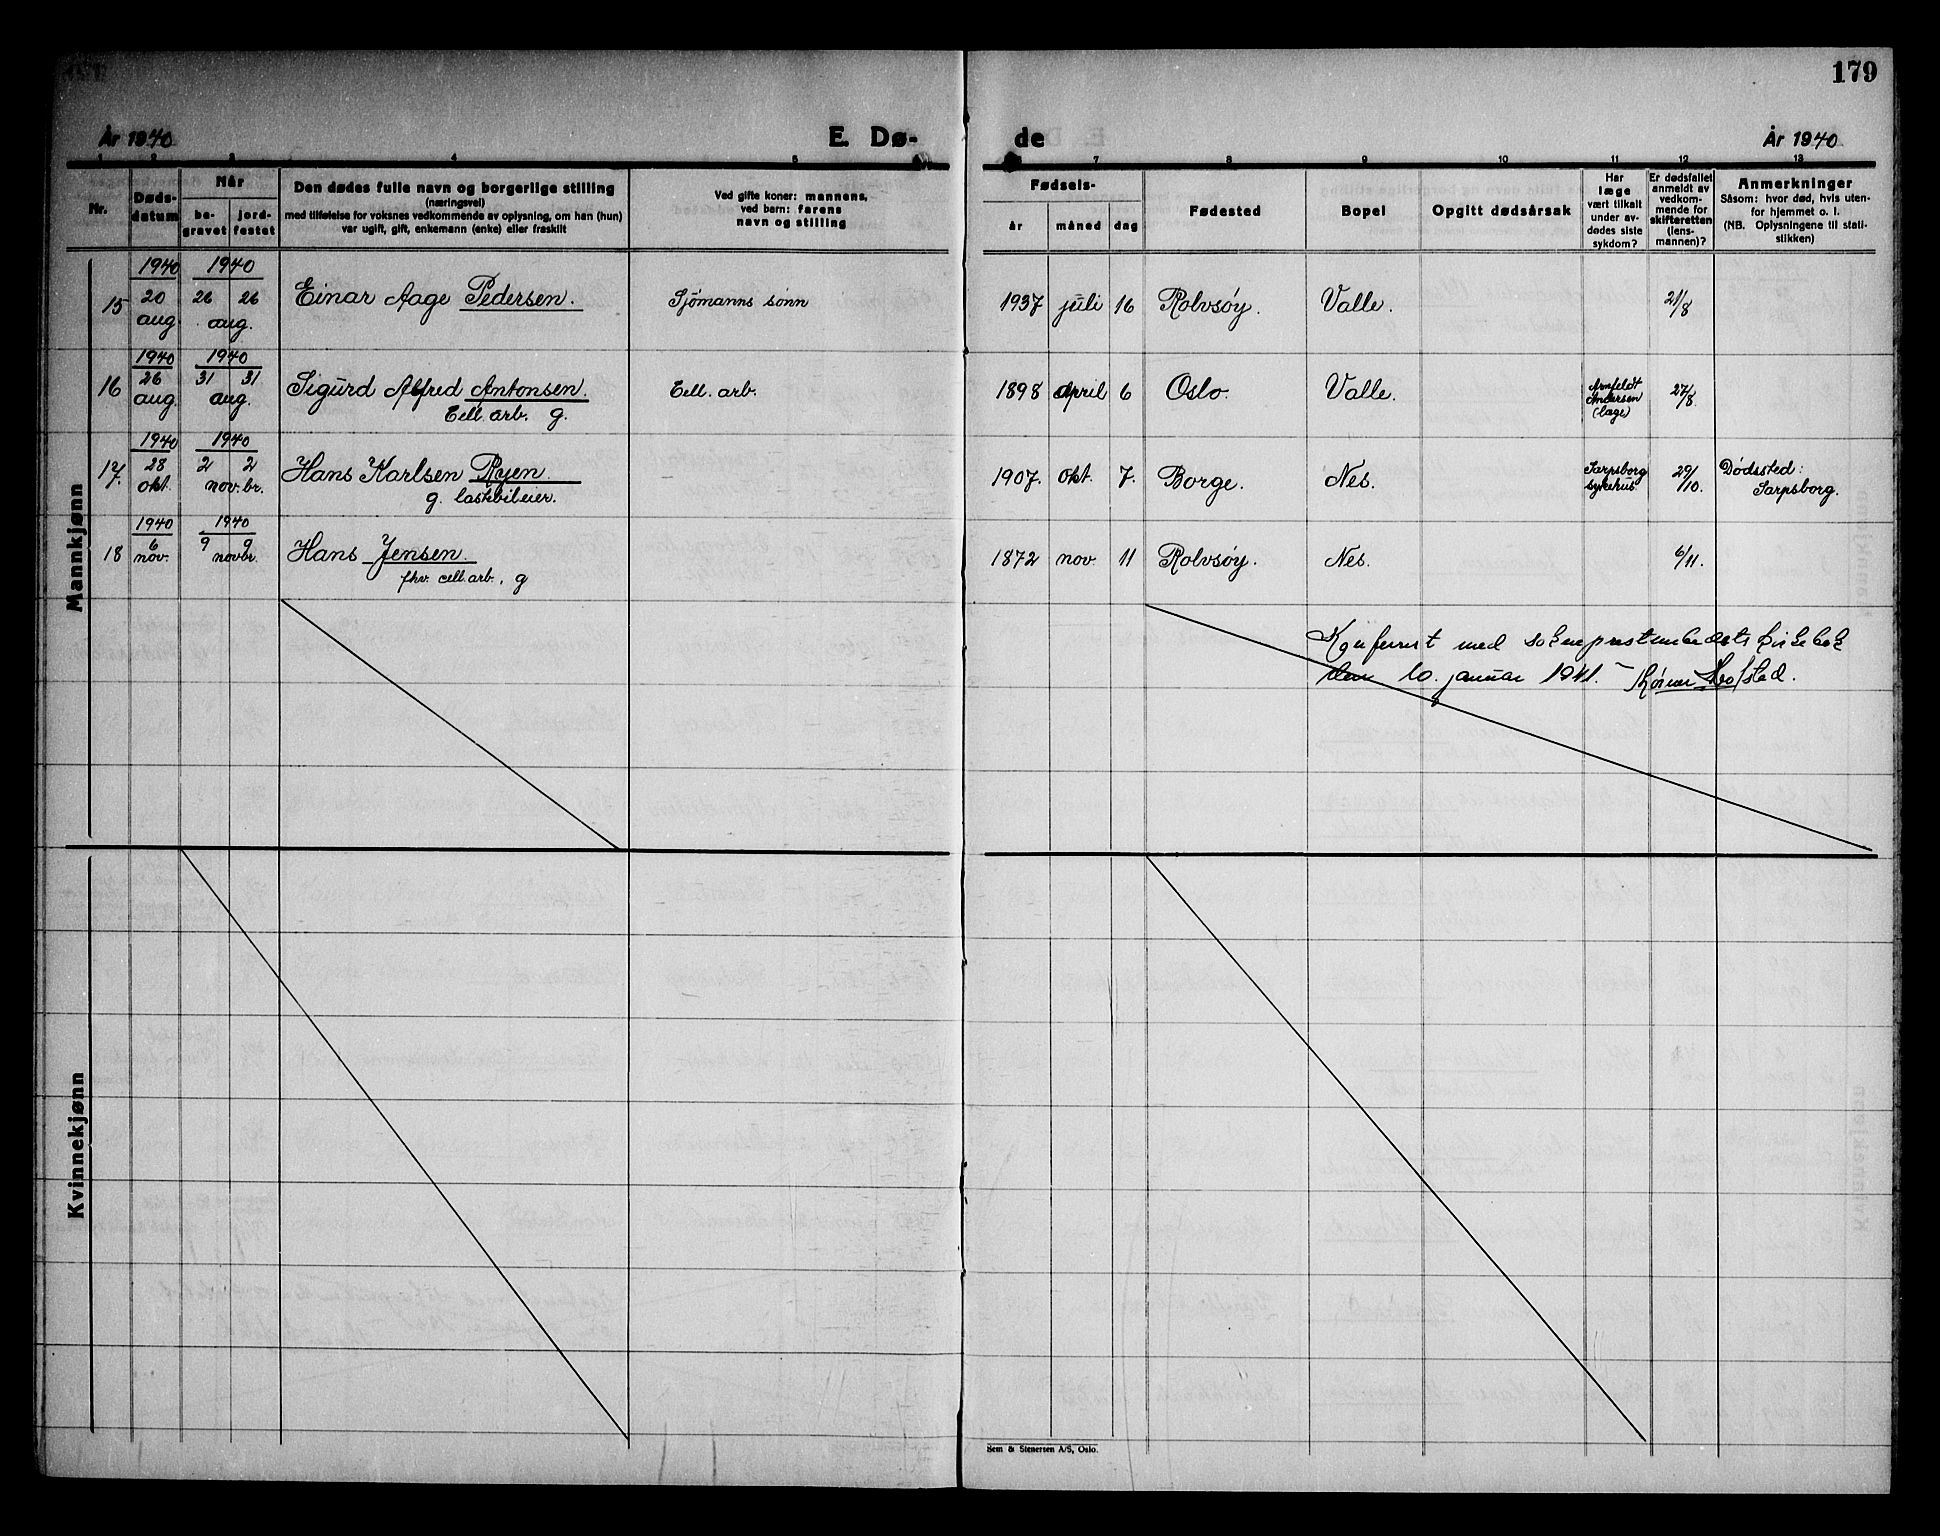 179
År 1940
E. Dø-
de
År 1940
1 2 3 4 5 6 7 8 9 10 11 12 13
Nr.
Døds-
datum
Når
be-
gravet
jord-
festet
Den dødes fulle navn og borgerlige stilling
(næringsvei)
med tilføielse for voksnes vedkommende av oplysning, om han (hun)
var ugift, gift, enkemann (enke) eller fraskilt
Ved gifte koner: mannens,
ved barn: farens
navn og stilling
Fødsels-
år måned dag
Fødested
Bopel
Opgitt dødsårsak
Har
læge
vært tilkalt
under av-
dødes siste
sykdom?
Er dødsfallet
anmeldt av
vedkom-
mende for
skifteretten
(lens-
mannen)?
Anmerkninger
Såsom: hvor død, hvis uten-
for hjemmet o. l.
(NB. Oplysningene til stati-
stikken)
Mannkjønn
1940 1940
15 20 26 26 Einar Aage Pedersen. Sjømanns sønn 1937 juli 16 Rolvsøy. Valle. 21/8
aug. aug.
1940 1940
16 26 31 31 Sigurd Alfred Antonsen. Cell. arb. 1898 april 6 Oslo. Valle. Arnfeldt Andersen (læge) 27/8.
aug. aug. Cell. arb. g.
1940 1940
17. 28 2 2 Hans Karlsen Ryen. 1907. okt. 7. Borge. Nes. Sarpsborg sykehus 29/10. Dødssted: Sarpsborg.
okt. nov.br. g. lastebileier.
1940 1940
18 6 9 9 Hans Jensen. 1872 nov. 11 Rolvsøy. Nes. 6/11.
nov. novbr. fhv. cell. arb., g
Konferert med sokneprestembedets kirkebok
den 10. januar 1941.
Kvinnekjønn
Sem & Stenersen A/S, Oslo.